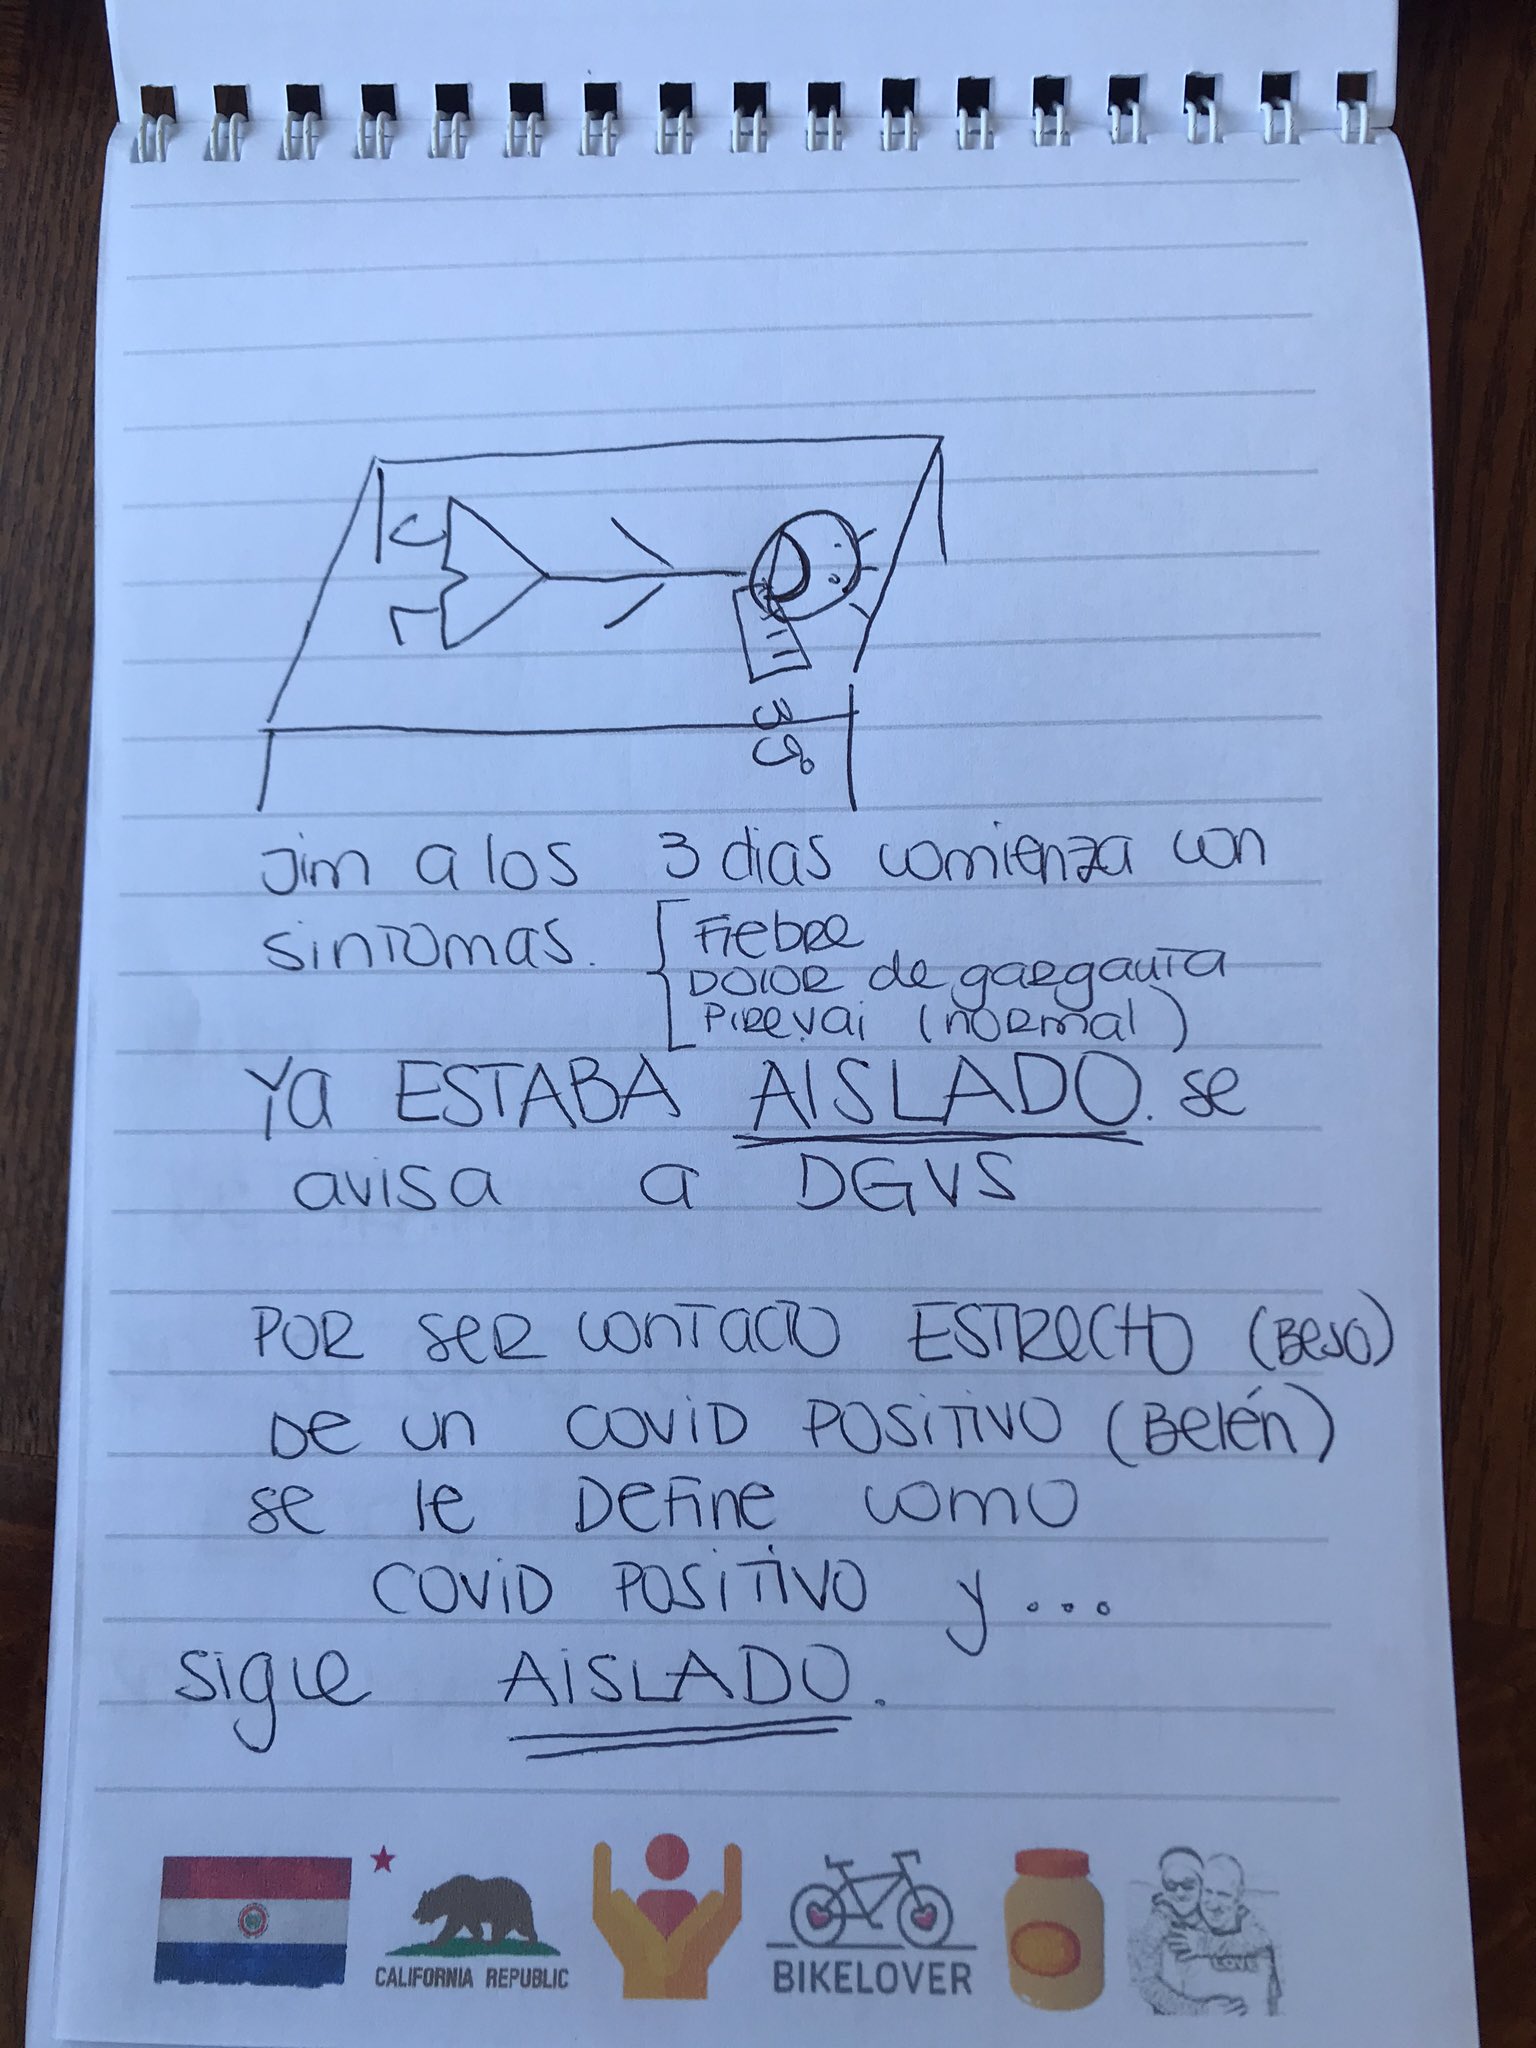 39°
Jim a los 3 dias comienza con
sintomas. [ Fiebre
Dolor de garganta
Pirevai (normal)
Ya ESTABA AISLADO. se
avisa a DGVS
POR SER CONTACTO ESTRECHO (Beso)
De un COVID POSITIVO (Belén)
se le Define como
COVID POSITIVO y ...
sigue AISLADO.
CALIFORNIA REPUBLIC
BIKELOVER
LOVE